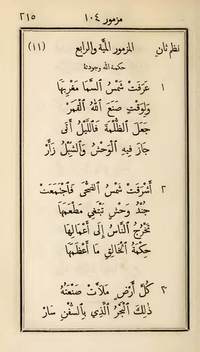 ٢١٥ مزمور ١٠٤
نظم ثانٍ المزمور المئة والرابع (١١)
حكمة الله وجودته
١ عَرَفَتْ شَمْسُ ٱلسَّمَا مَغْرِبَهَا
وَلِوَقْتٍ صَنَعَ ٱللهُ ٱلْقَمَرْ
جَعَلَ ٱلظُّلْمَةَ فَٱللَّيْلُ أَتَى
جَازَ فِيهِ ٱلْوَحْشُ وَٱلشِّبْلُ زَأَرْ
٢ أَشْرَقَتْ شَمْسُ ٱلضُّحَى فَٱجْتَمَعَتْ
جُنْدُ وَحْشٍ تَبْتَغِي مَطْعَمَهَا
يَخْرُجُ ٱلنَّاسُ إِلَى أَعْمَالِهَا
حِكْمَةُ ٱلْخَالِقِ مَا أَعْظَمَهَا
٣ كُلَّ أَرْضٍ مَلَأَتْ صَنْعَتُهُ
ذٰلِكَ ٱلْبَحْرُ ٱلَّذِي بِٱلسُّفْنِ سَارْ